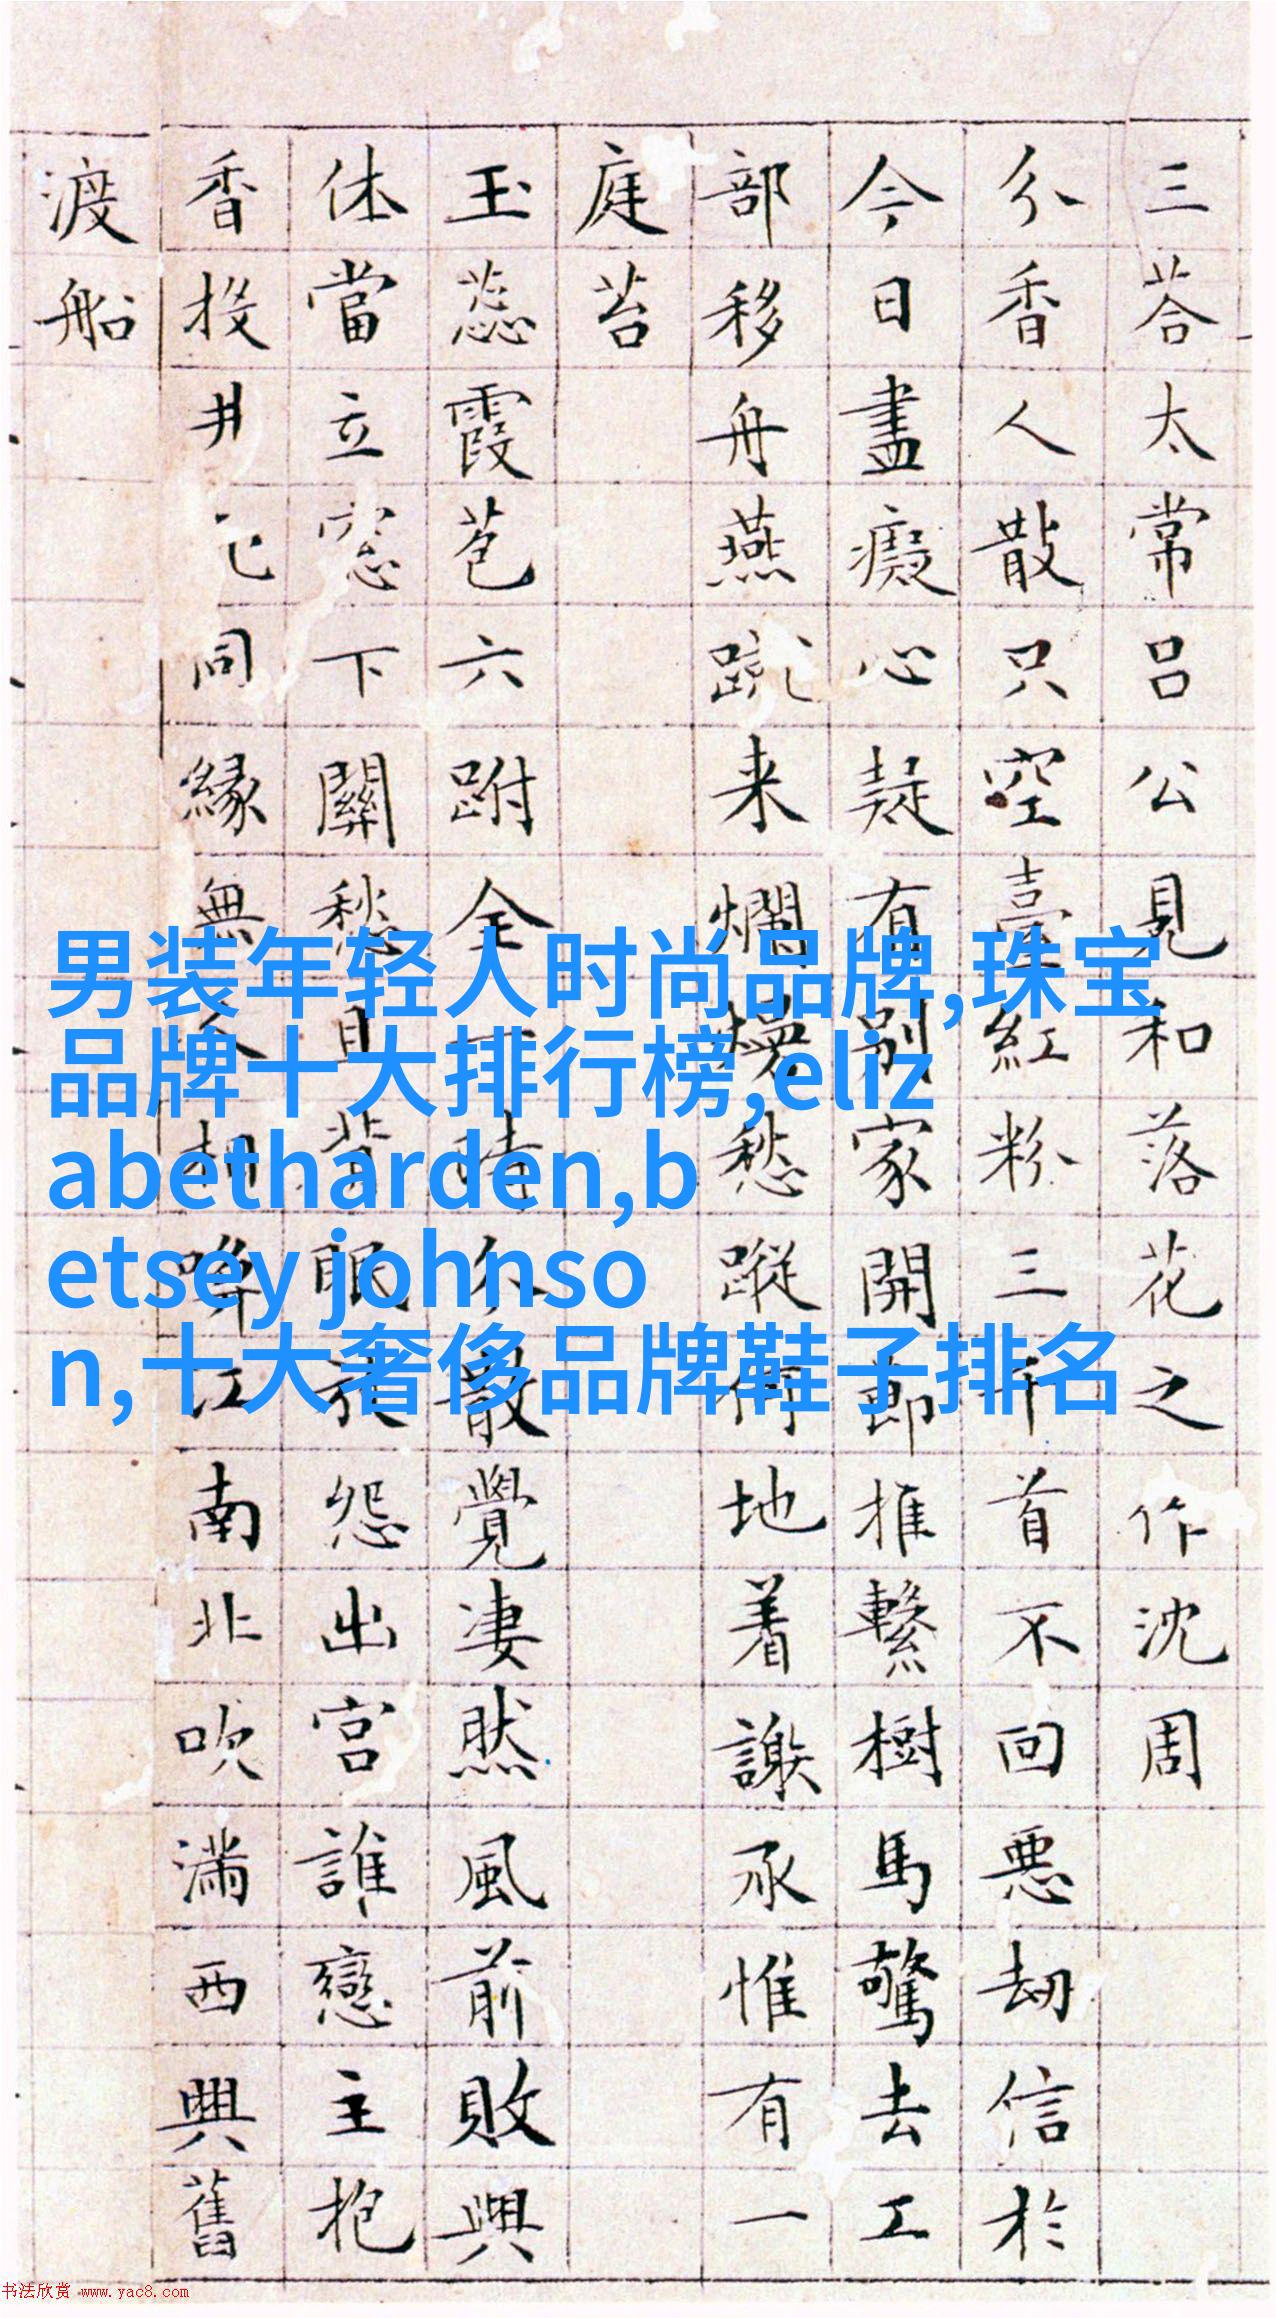 三荅太常吕公見和落花之作沈周
分香人散只空臺紅粉三千首不回惡劫信於
今日盡癡心疑有别家開節推繫樹馬驚去工
部移舟燕蹴来爛熳愁蹤何地着謝承惟有一
庭苔
玉蕊霞苞六跗全一時分散覺凄然風前敗興
休當立窓下關愁且背眠放怨出宮誰戀主抱
香投井同緣無人相喚江南北吹滿西興舊
渡船
男装年轻人时尚品牌,珠宝
品牌十大排行榜,eliz
abetharden,b
etsey johnso
n,十大奢侈品牌鞋子排名
书法欣赏 www.yac8.com